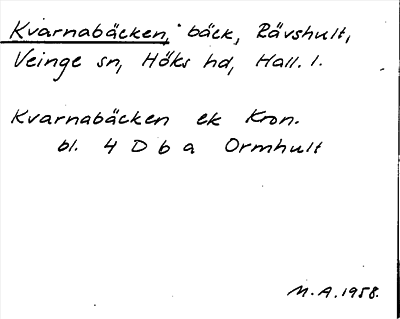 Kvarnabäcken, bäck, Rävshult,
Veinge sn, Höks hd, Hall. l.
Kvarnabäcken ek Kron.
bl. 4 D b a Ormhult
M.A.1958.